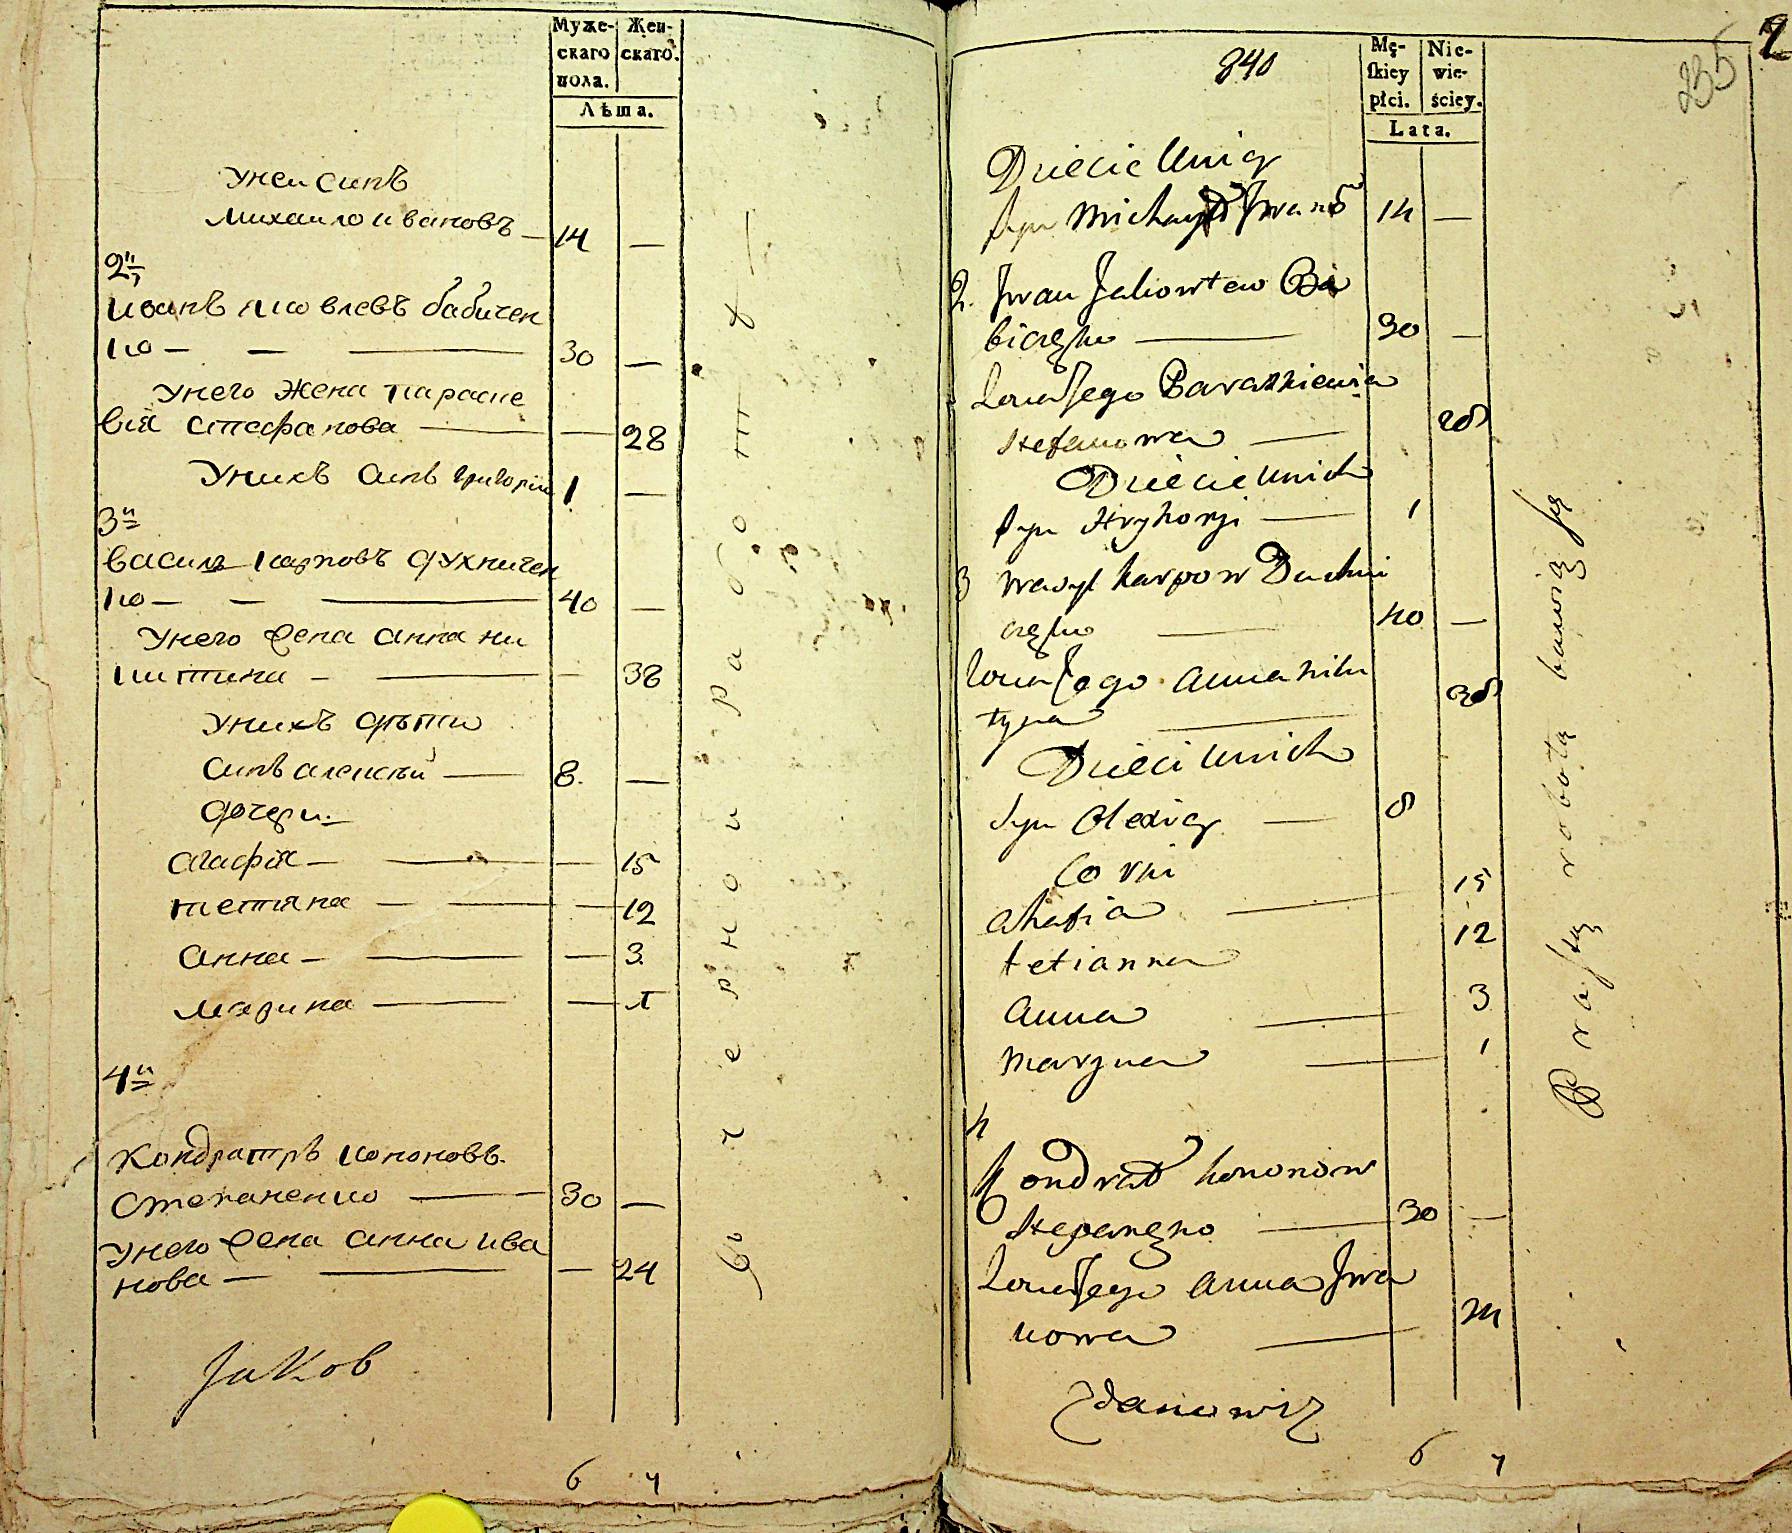 Муже- Жен-
скаго скаго.
пола.
Лѣта.
Унеи синъ
Михаило ивановъ — 14 —
2й
иванъ яковлевъ бабичен
ко — — — 30 —
Унего жена параске
вія стефанова — — 28
Унихъ синъ григорій 1 —
3й
василь карповъ духничен
ко — — — 40 —
Унего жена анна ни
китина — — — 38
Унихъ дѣти
синъ алексѣй — 8. —
дочери
агафія — — — 15
тетяна — — — 12
анна — — — 3
марина — — 1
4й
Кондратъ кононовъ
степаненко — 30 —
Унего жена анна ива
нова — — — 24
Jakob
6 4
в чернои работѣ
840
235
2
Mę- Nie-
skiey wie-
płci. ściey.
Lata.
Dziecie Uniey
syn Michayło Jwanó 14 —
2. Jwan Jakowlew Ba
biczęko — 30 —
Żona Jego Paraskiewia
Stefanowa — 28
Dziecie Unich
syn Hryhorji — 1
3 Wasyl karpow Duchni
częko — 40 —
Żona Jego anna niki
tyna — 38
Dzieci Unich
syn Olexiey — 8
Corki
ahafia — 15
tetianna 12
anna — 3
maryna — 1
4
Kondrat kononow
Stepanęko — 30 —
Żona Jego anna Jwa
nowa — 24
Zdanowicz
6 4
Prostą robotą bawią się